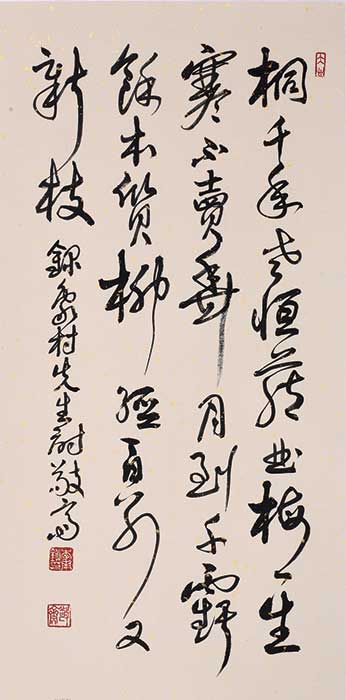 桐千年老恒藏曲梅一生
寒不賣香月到千虧
餘本質柳經百別又
新枝 錄象村先生詩敬